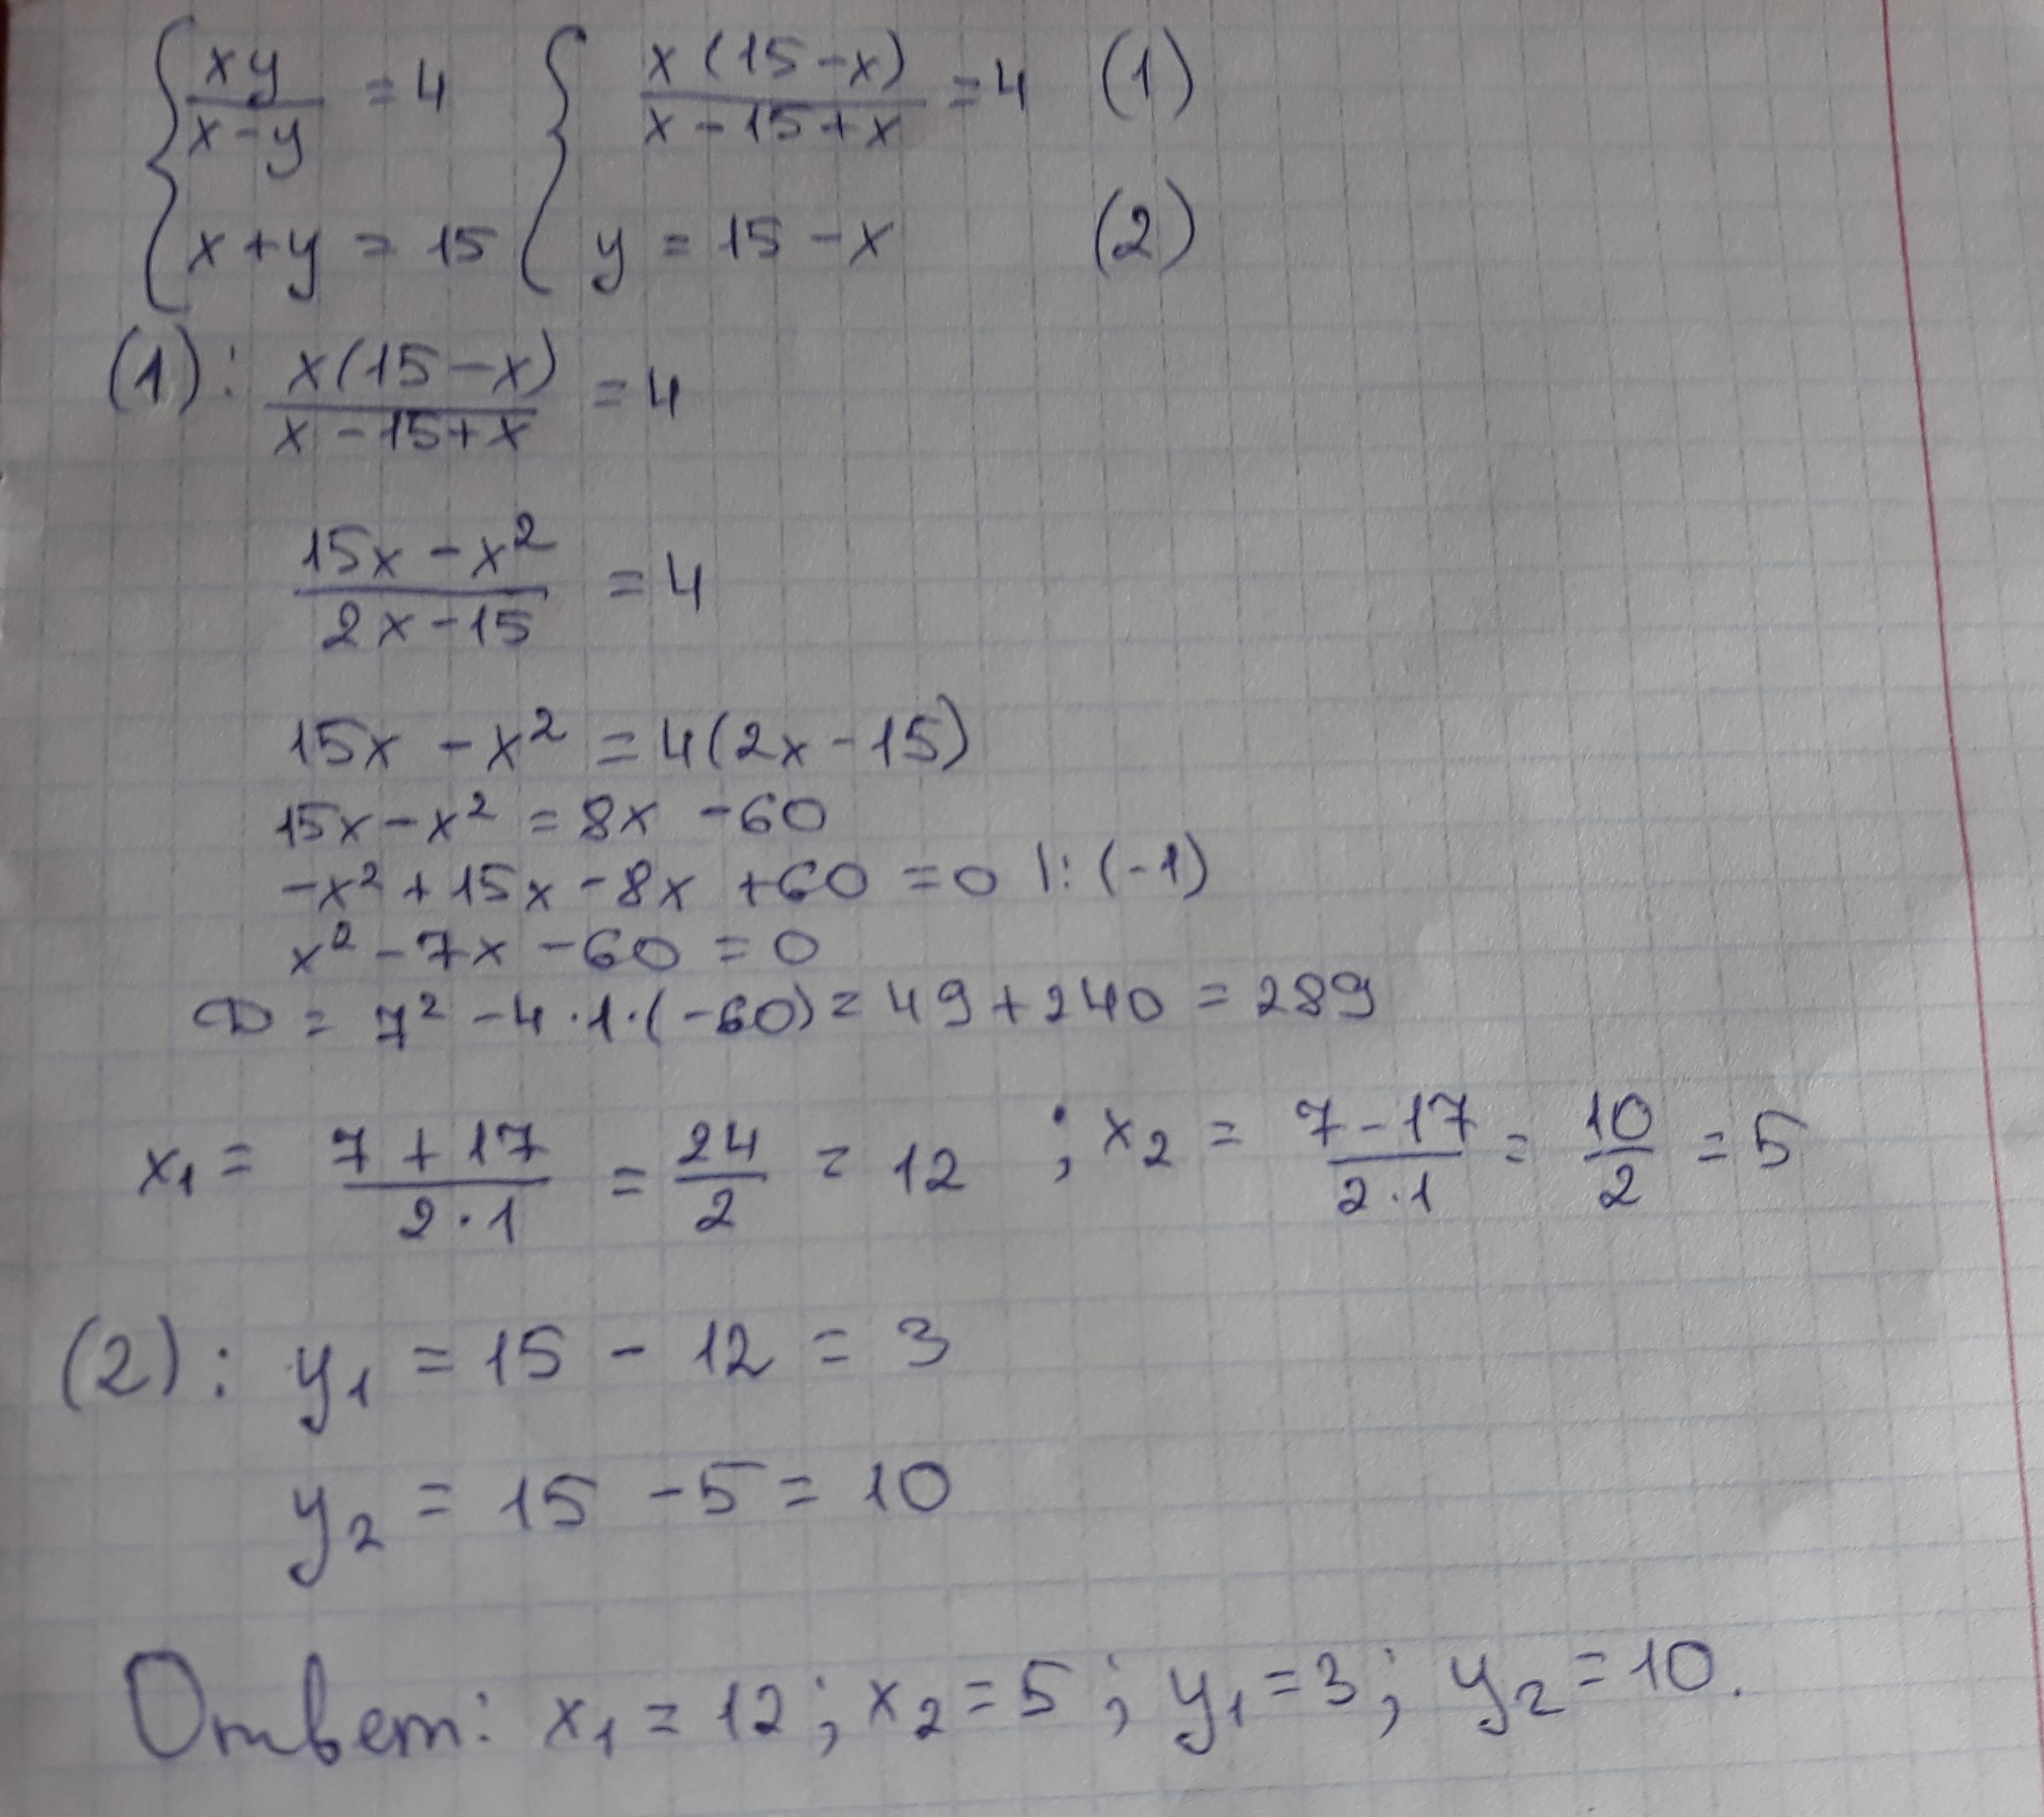 { xy / x - y = 4 { x(15-x) / x-15+x = 4 (1)
x+y = 15 y = 15-x (2)
(1): x(15-x) / x-15+x = 4
15x-x² / 2x-15 = 4
15x - x² = 4(2x-15)
15x-x² = 8x -60
-x²+15x-8x +60 =0 |: (-1)
x²-7x -60=0
D = 7² -4·1·(-60)=49+240=289
x₁ = 7+17 / 2·1 = 24 / 2 = 12 ; x₂ = 7-17 / 2·1 = 10 / 2 = 5
(2): y₁ = 15 - 12 = 3
y₂ = 15 -5 = 10
Ответ: x₁=12; x₂=5; y₁=3; y₂=10.